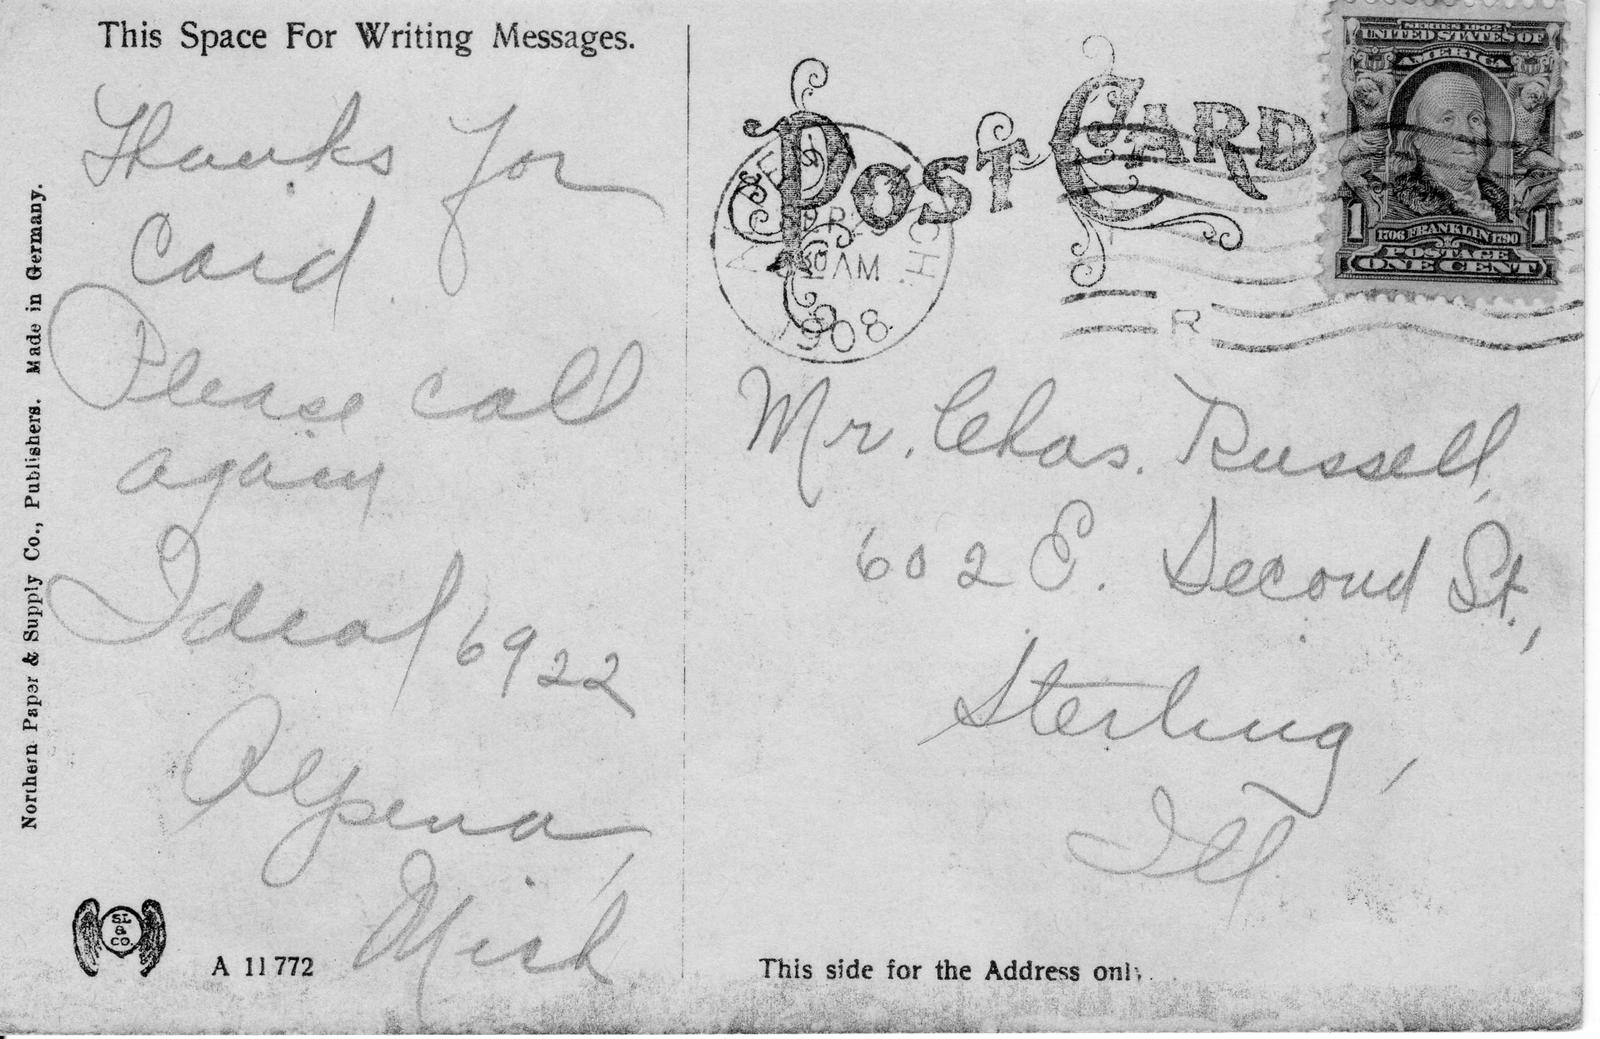 This Space For Writing Messages.
Thanks for
Card.
Please call
again
Ideal 6922
Alpena,
Mich
Northern Paper & Supply Co., Publishers. Made in Germany.
SL
&
CO.
A 11772
POST CARD
MICH.
AM
1908
R
SERIES 1902
UNITED STATES OF
AMERICA
1 1
1706 FRANKLIN 1790
POSTAGE
ONE CENT
Mr. Chas. Russell,
602 E. Second St.,
Sterling,
Ill
This side for the Address only.